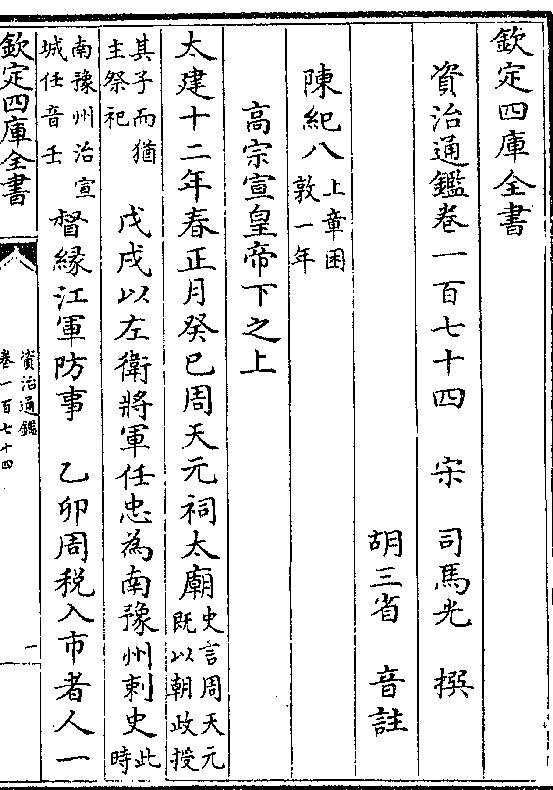 欽定四庫全書
資治通鑑卷一百七十四 宋 司馬光 撰
胡三省 音註
陳紀八上章困敦一年
高宗宣皇帝下之上
太建十二年春正月癸巳周天元祠太廟史言周天元既以朝政授
其子而猶主祭祀戊戌以左衛將軍任忠為南豫州刺史此時
南豫州治宣城任音壬督縁江軍防事 乙卯周税入市者人一
欽定四庫全書
資治通鑑
卷一百七十四
一